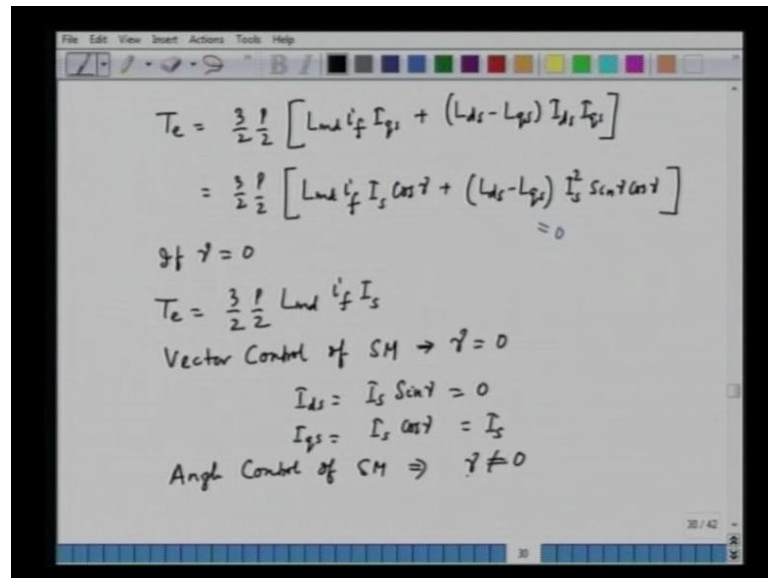 File Edit View Insert Actions Tools Help
B I
Te = 3/2 P/2 [Lmd i'f Iqs + (Lds - Lqs) Ids Iqs]
= 3/2 P/2 [Lmd i'f Is Cosγ + (Lds - Lqs) Is² Sinγ Cosγ]
= 0
If γ = 0
Te = 3/2 P/2 Lmd i'f Is
Vector Control of SM → γ = 0
Ids = Is Sinγ = 0
Iqs = Is Cosγ = Is
Angle Control of SM ⇒ γ ≠ 0
30 / 42
30